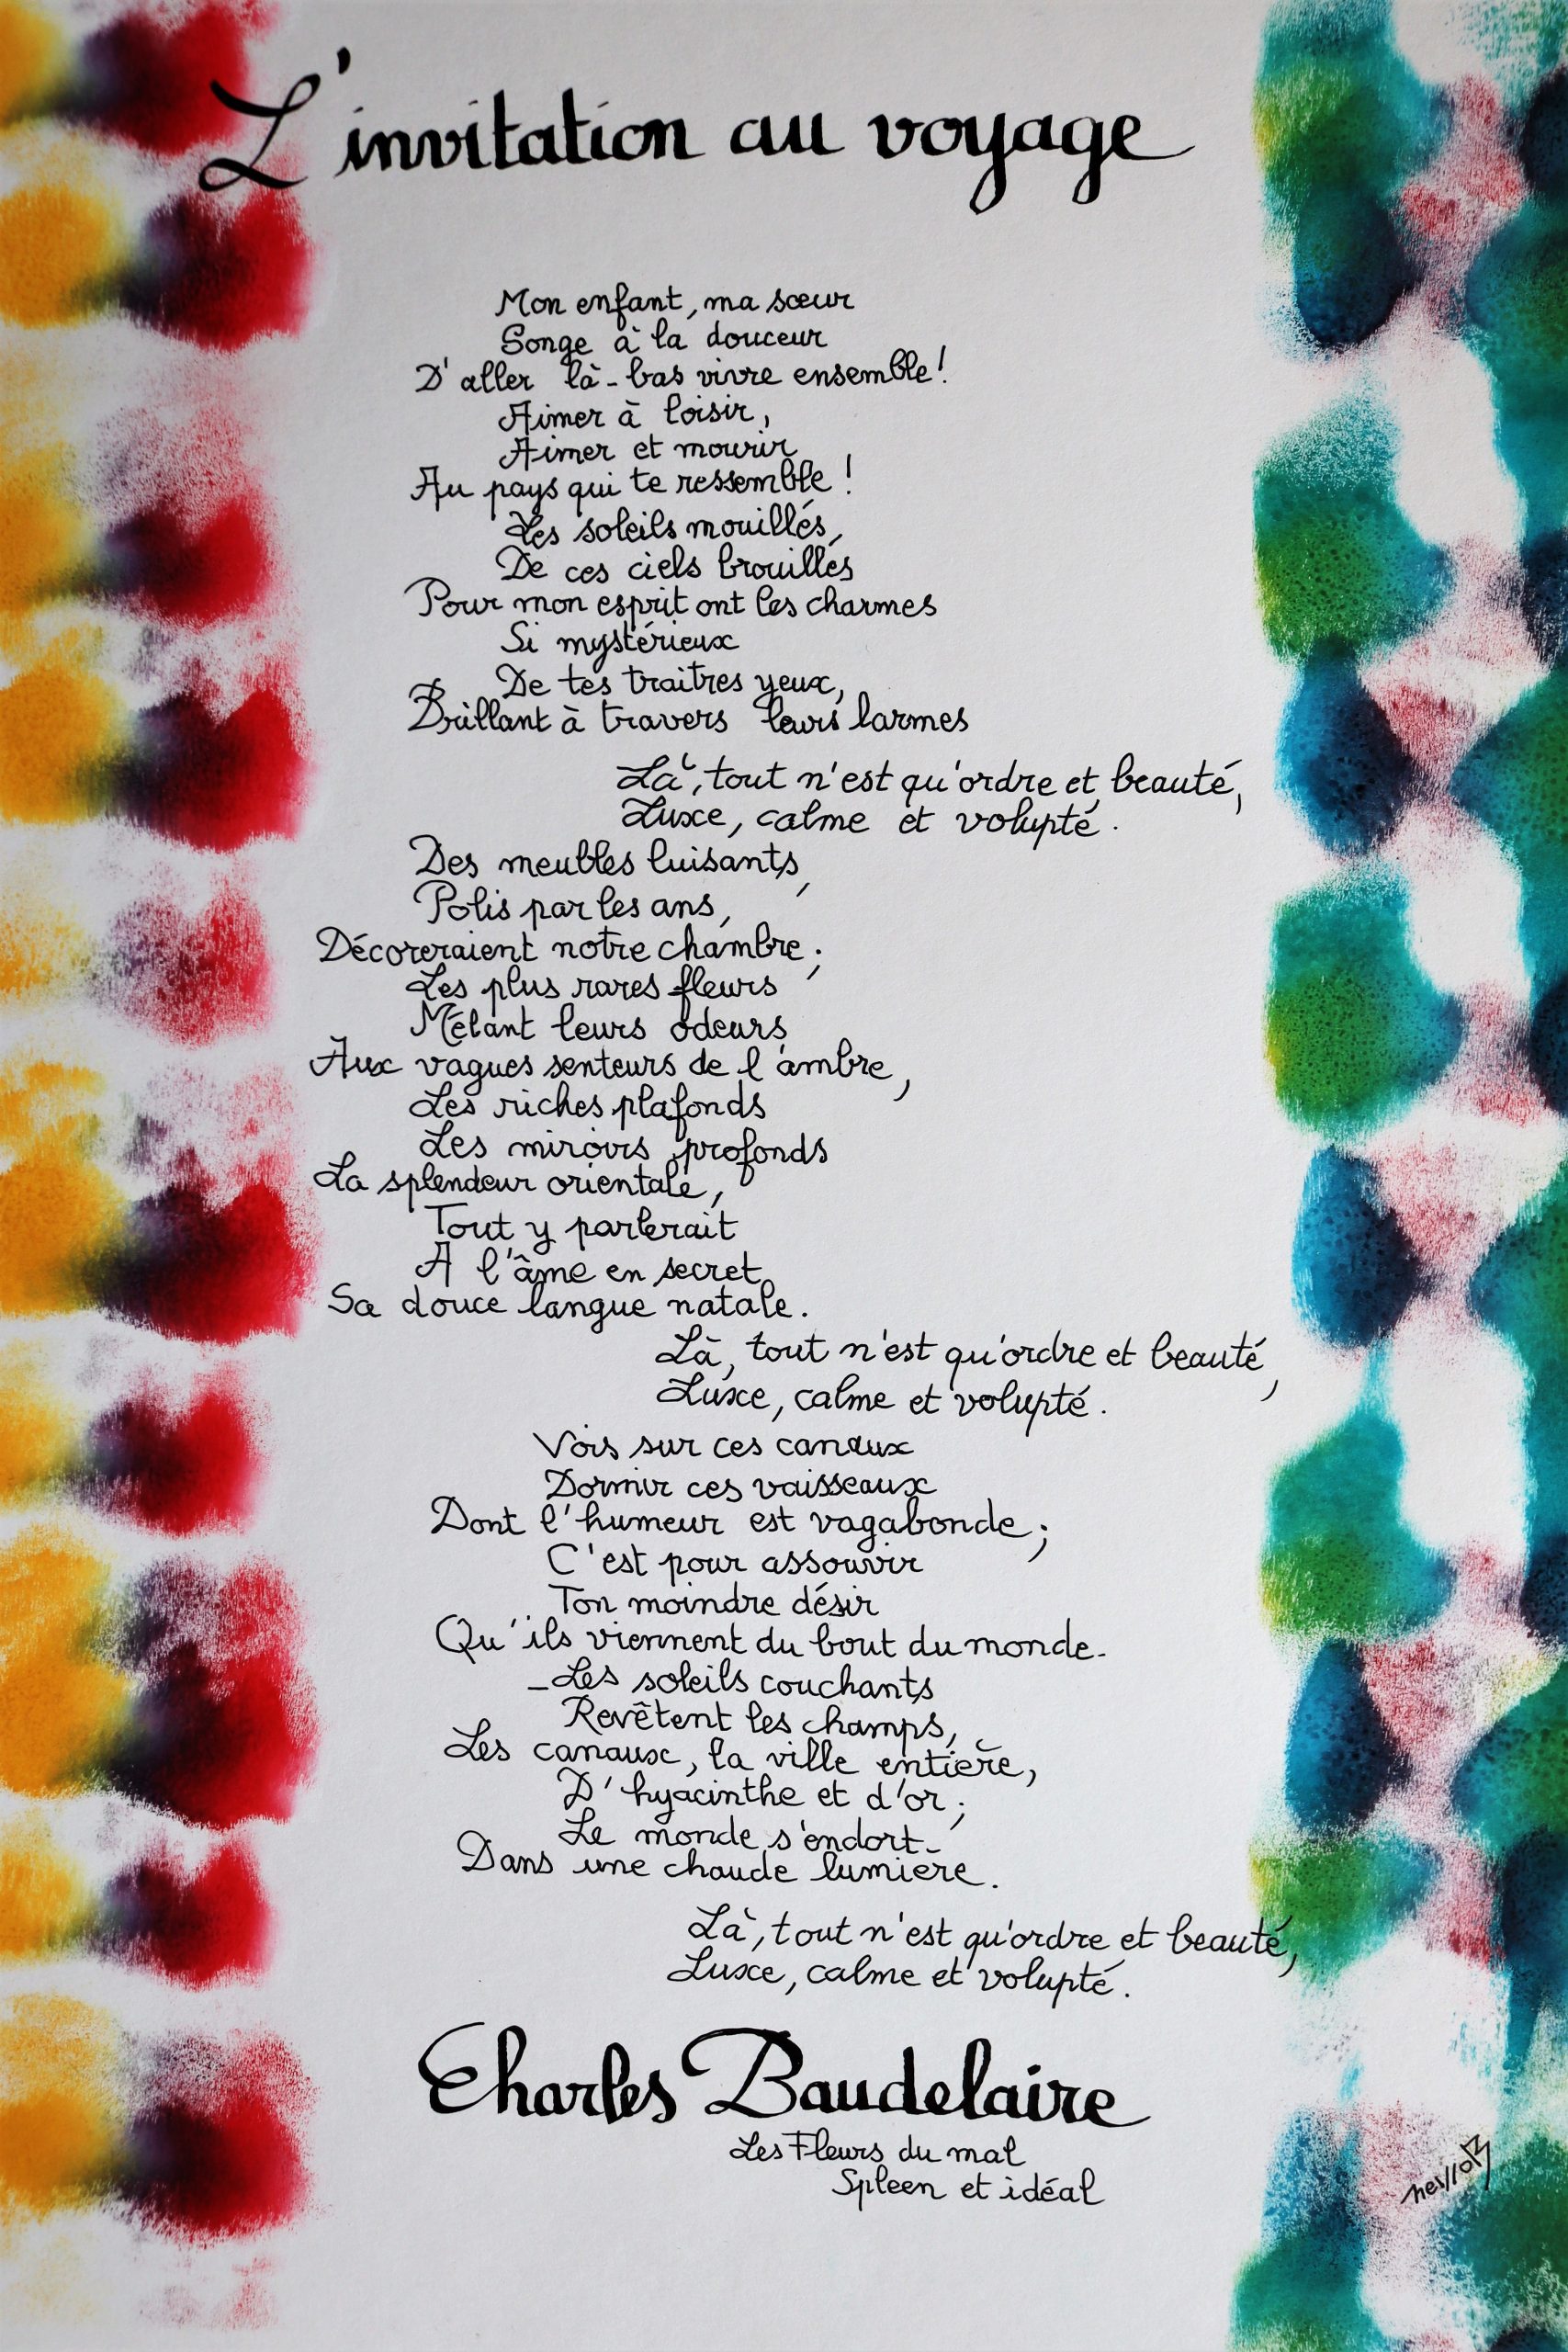 L'invitation au voyage
Mon enfant, ma sœur
Songe à la douceur
D'aller là-bas vivre ensemble!
Aimer à loisir,
Aimer et mourir
Au pays qui te ressemble!
Les soleils mouillés,
De ces ciels brouillés
Pour mon esprit ont les charmes
Si mystérieux
De tes traitres yeux,
Brillant à travers leurs larmes
Là, tout n'est qu'ordre et beauté,
Luxe, calme et volupté.
Des meubles luisants,
Polis par les ans,
Décoreraient notre chambre;
Les plus rares fleurs
Mêlant leurs odeurs
Aux vagues senteurs de l'ambre,
Les riches plafonds
Les miroirs profonds
La splendeur orientale,
Tout y parlerait
A l'âme en secret
Sa douce langue natale.
Là, tout n'est qu'ordre et beauté,
Luxe, calme et volupté.
Vois sur ces canaux
Dormir ces vaisseaux
Dont l'humeur est vagabonde;
C'est pour assouvir
Ton moindre désir
Qu'ils viennent du bout du monde.
-Les soleils couchants
Revêtent les champs,
Les canaux, la ville entière,
D'hyacinthe et d'or;
Le monde s'endort
Dans une chaude lumière.
Là, tout n'est qu'ordre et beauté,
Luxe, calme et volupté.
Charles Baudelaire
Les Fleurs du mal
Spleen et idéal